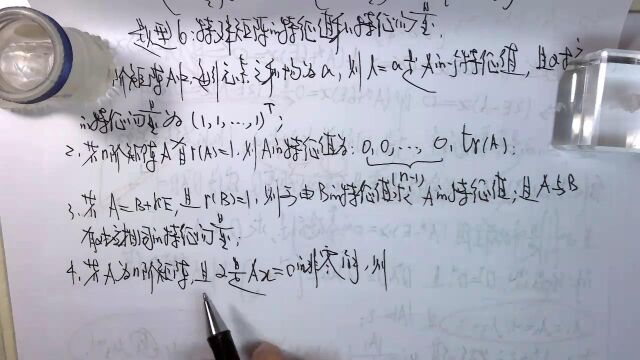 题型6:特殊矩阵的特征值和特征向量.
阶矩阵A中,每行元素之和均为a,则λ=a是A的一个特征值,且a对应
的特征向量为(1,1,…,1)ᵀ;
2.若n阶矩阵A有r(A)=1,则A的特征值为:0,0,…,0,tr(A);
(n-1)
3.若A=B+kE,且r(B)=1,则可由B的特征值求A的特征值;且A与B
有相同的特征向量;
4.若A为n阶矩阵,且α是Ax=0的非零解,则